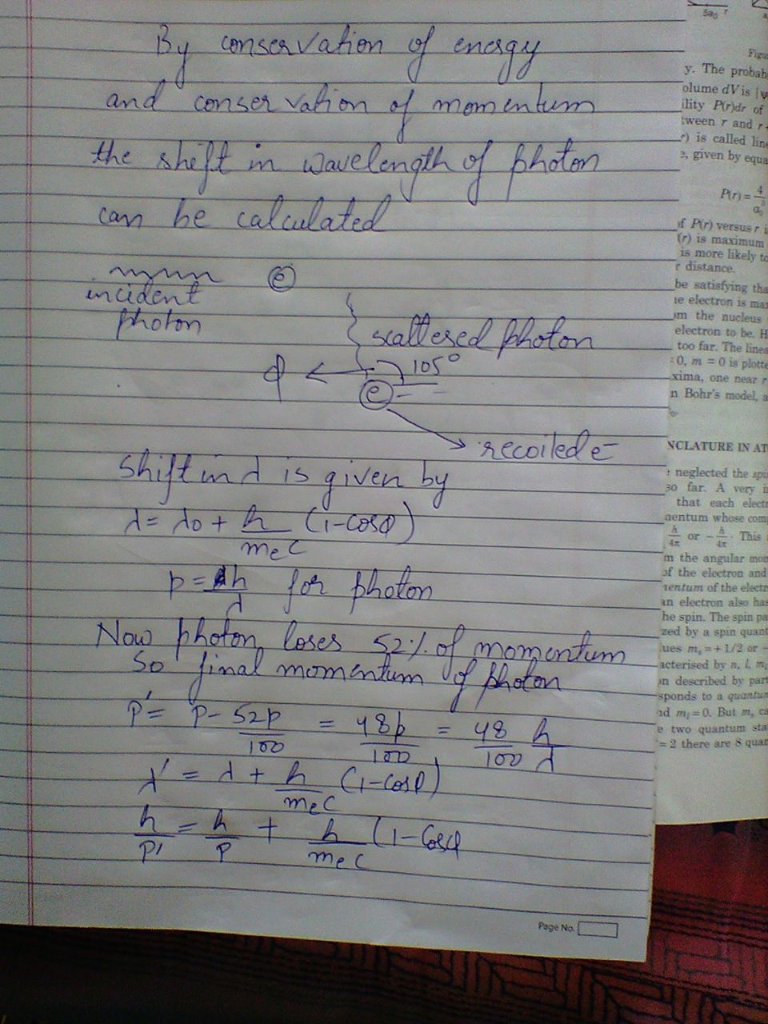 By conservation of energy
and conservation of momentum
the shift in wavelength of photon
can be calculated
incident
photon
e
scattered photon
ϕ
105°
e
recoiled e-
Shift in λ is given by
λ = λ0 + h/mec (1-cosϕ)
p = h/λ for photon
Now photon loses 52% of momentum
So final momentum of photon
p' = p - 52p/100 = 48p/100 = 48/100 h/λ
λ' = λ + h/mec (1-cosϕ)
h/p' = h/p + h/mec (1-Cosϕ
Page No.
5a0
y. The probab
olume dV is |ψ
ility P(r)dr of
tween r and r
r) is called line
given by equa
P(r) = 4/a0
of P(r) versus r i
(r) is maximum
is more likely to
r distance.
be satisfying tha
he electron is ma
om the nucleus
electron to be. H
too far. The linea
0, m = 0 is plotte
xima, one near r
n Bohr's model, a
NCLATURE IN AT
neglected the spi
so far. A very i
that each electr
mentum whose com
h/4π or - h/4π. This
m the angular mom
of the electron and
mentum of the electr
an electron also has
he spin. The spin pa
zed by a spin quant
lues ms = + 1/2 or -
acterised by n, l, ml
n described by part
sponds to a quantum
nd ml = 0. But ms ca
e two quantum stat
= 2 there are 8 quan